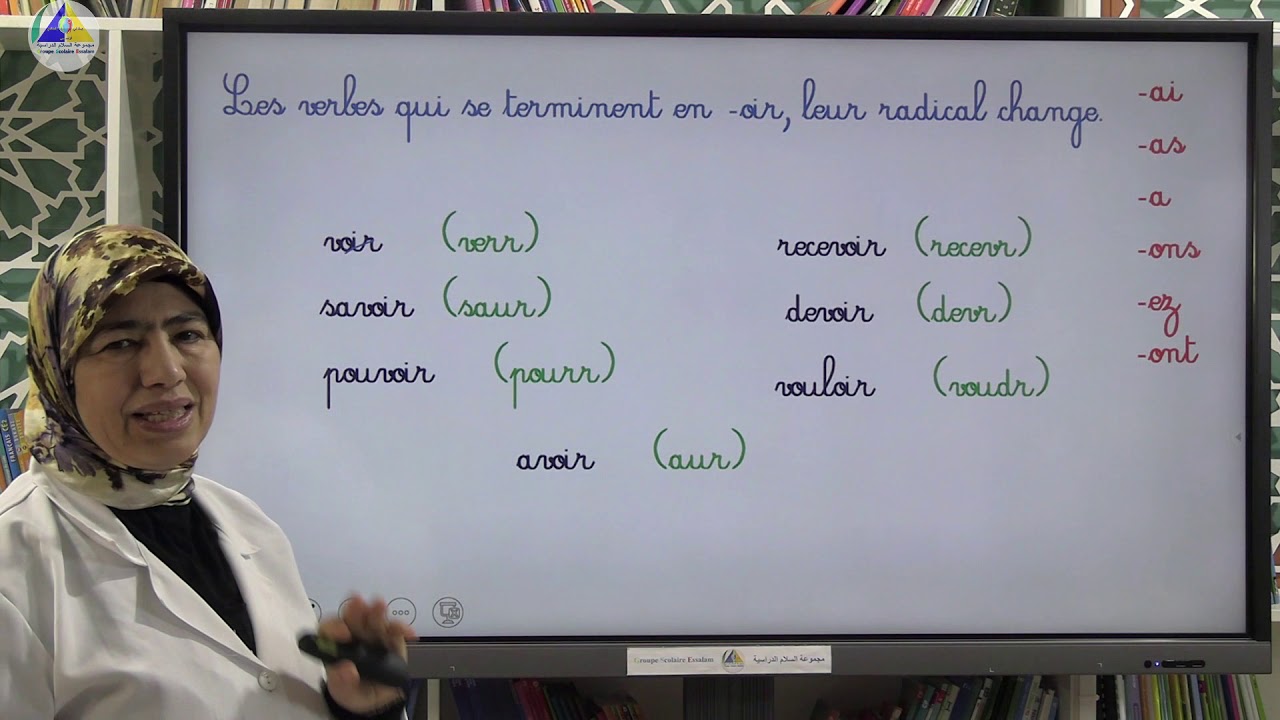 مجموعة السلام الدراسية
Groupe Scolaire Essalam
Les verbes qui se terminent en -oir, leur radical change.
-ai
-as
-a
-ons
-ez
-ont
voir (verr)
recevoir (recevr)
savoir (saur)
devoir (devr)
pouvoir (pourr)
vouloir (voudr)
avoir (aur)
Groupe Scolaire Essalam مجموعة السلام الدراسية
FRANÇAIS CE5